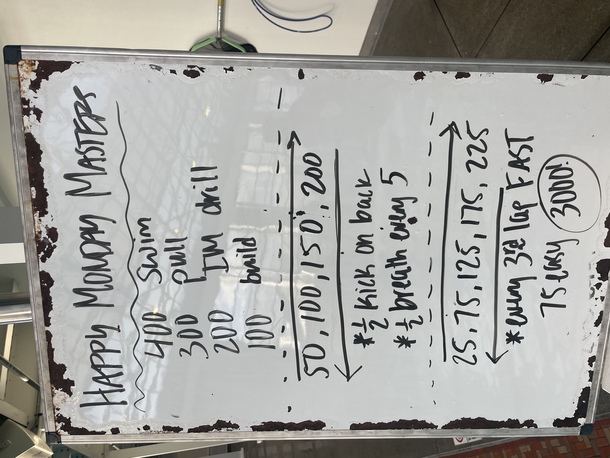 HAPPY MONDAY MASTERS
400 swim
300 pull
200 IM drill
100 build
50, 100, 150, 200
*½ kick on back
*½ breath every 5
25, 75, 125, 175, 225
*every 3rd lap FAST
75 easy 3000!